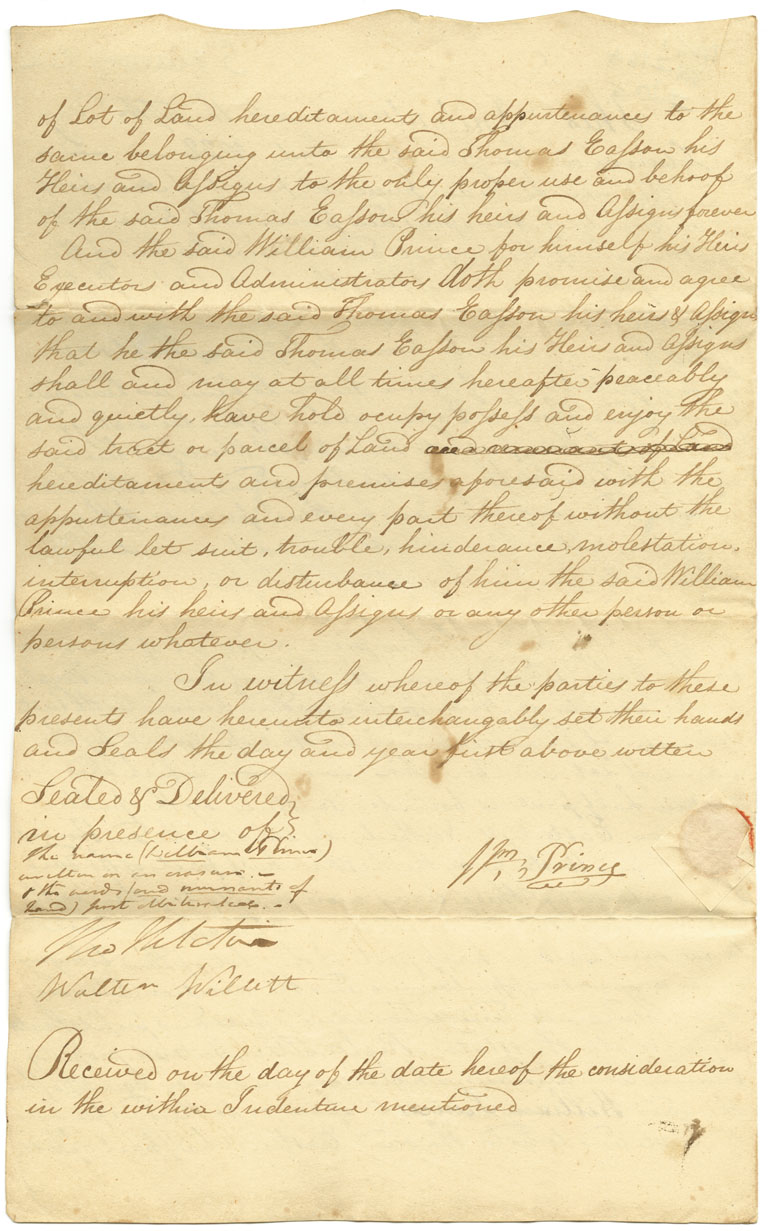 of Lot of Land hereditaments and appurtenances to the
same belonging unto the said Thomas Eaſson his
Heirs and Aſsigns to the only proper use and behoof
of the said Thomas Eaſson his heirs and Aſsigns forever
And the said William Prince for himself his Heirs
Executors and Administrators doth promise and agree
to and with the said Thomas Eaſson his heirs & Aſsigns
that he the said Thomas Eaſson his Heirs and Aſsigns
shall and may at all times hereafter peaceably
and quietly, have hold ocupy poſseſs and enjoy the
said tract or parcel of Land and remnant of Land
hereditaments and premises aforesaid with the
appurtenances and every part thereof without the
lawful let suit, trouble, hinderance, molestation,
interruption, or disturbance of him the said William
Prince his heirs and Aſsigns or any other person or
persons whatever.
In witneſs whereof the parties to these
presents have hereunto interchangably set their hands
and Seals the day and year first above written
Sealed & Delivered
in presence of
the name (William Prince)
written on an erasure
& the words (and remnants of
Land) first obliterated
Wm. Prince
Walter Willett
Received on the day of the date hereof the consideration
in the within Indenture mentioned